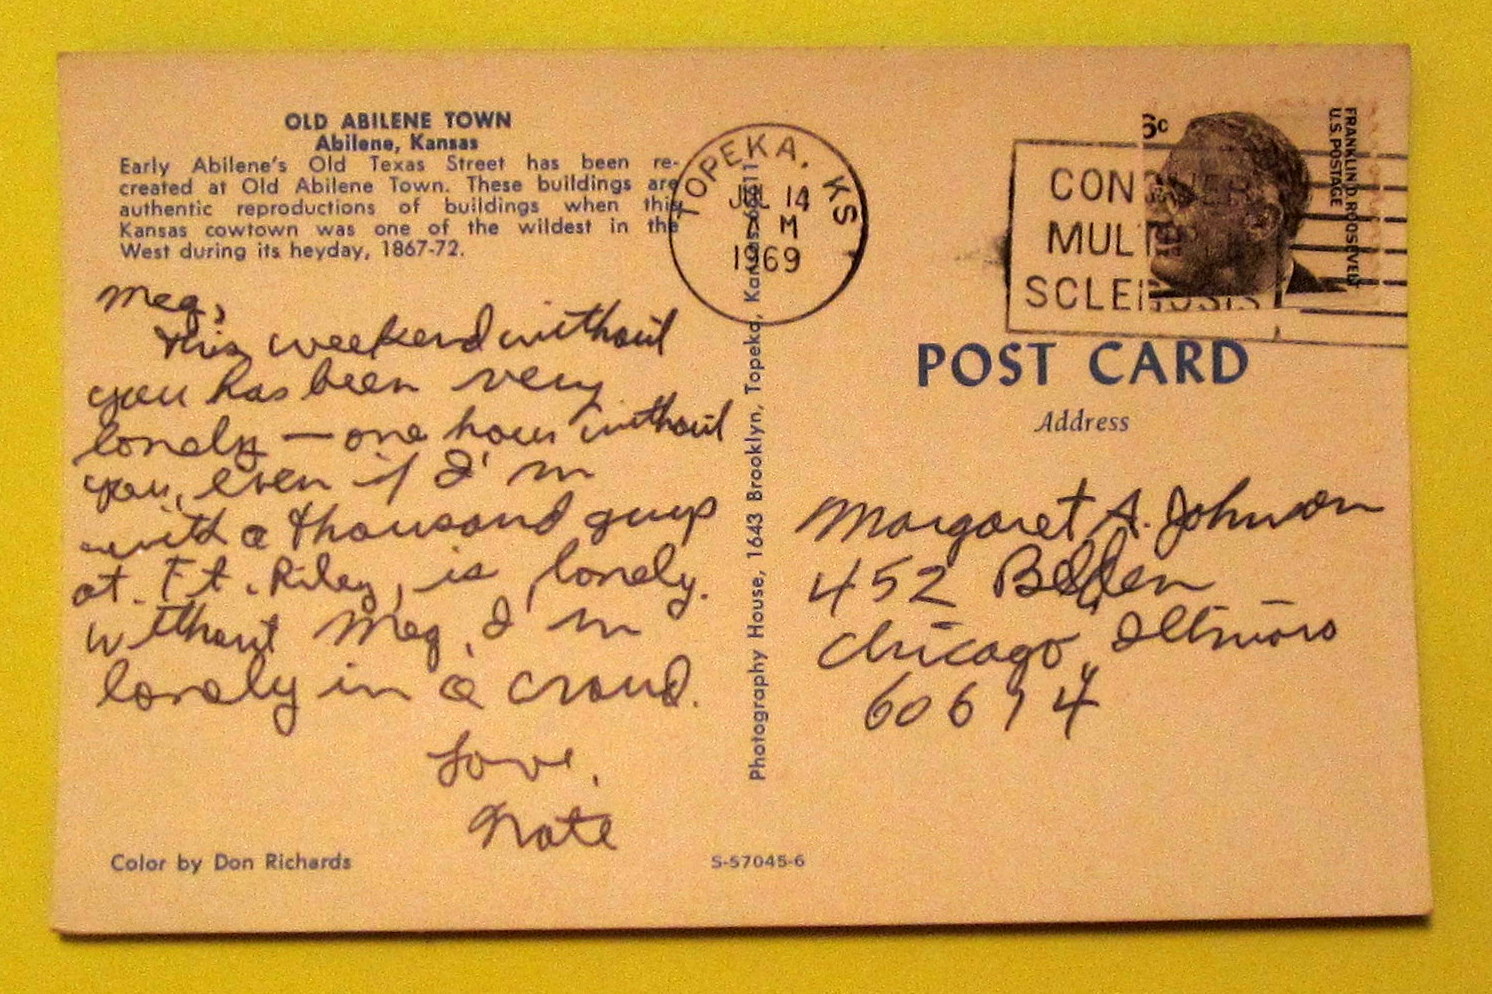 OLD ABILENE TOWN
Abilene, Kansas
Early Abilene's Old Texas Street has been re-
created at Old Abilene Town. These buildings are
authentic reproductions of buildings when this
Kansas cowtown was one of the wildest in the
West during its heyday, 1867-72.
Meg,
This weekend without
you has been very
lonely — one hour without
you, even if I'm
with a thousand guys
at Ft. Riley, is lonely.
Without Meg, I'm
lonely in a crowd.
Love,
Nate
Color by Don Richards
S-57045-6
Photography House, 1643 Brooklyn, Topeka, Kansas 66611
TOPEKA, KS
JUL 14
AM
1969
CONQUER
MULTIPLE
SCLEROSIS
6c
FRANKLIN D. ROOSEVELT
U.S. POSTAGE
POST CARD
Address
Margaret A. Johnson
452 Belden
Chicago, Illinois
60614